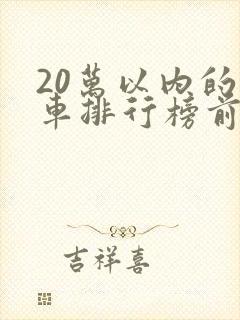 20萬以內的
車排行榜前
吉祥喜